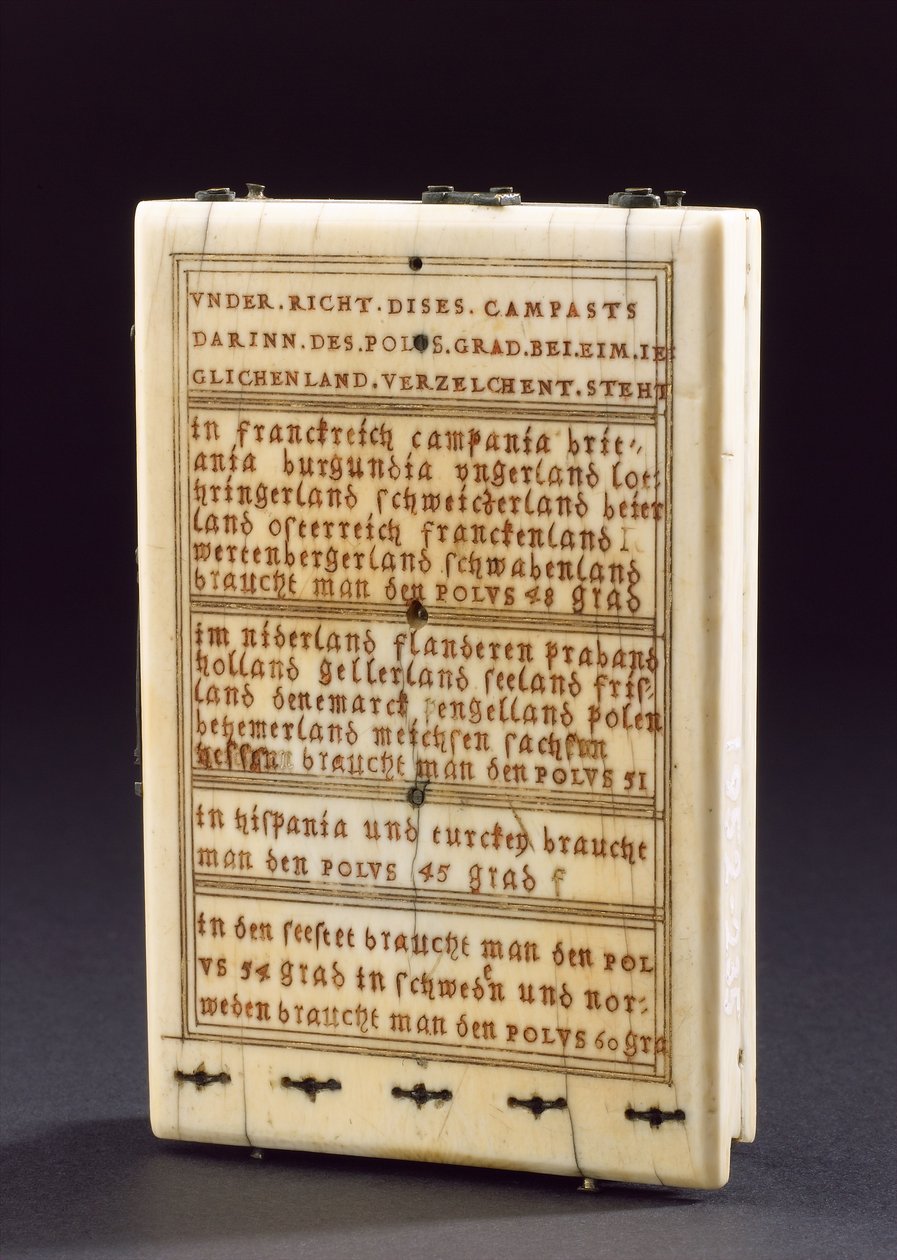 VNDER.RICHT.DISES.CAMPASTS
DARINN.DES.POLVS.GRAD.BEI.EIM.IE:
GLICHENLAND.VERZELCHENT.STEHT
in franckreich campania brit-,
ania burgundia vngerland lott
hringerland schweiczerland beier
land osterreich franckenland
wertenbergerland schwabenland
braucht man den POLVS 48 grad
im niderland flanderen praband
holland gellerland seeland fris,
land denemarck engelland polen
behemerland meichsen sachsen
hessen braucht man den POLVS 51
in hispania und turckey braucht
man den POLVS 45 grad f
in den seestet braucht man den POL
VS 54 grad in schweden und nor:
weden braucht man den POLVS 60 gra